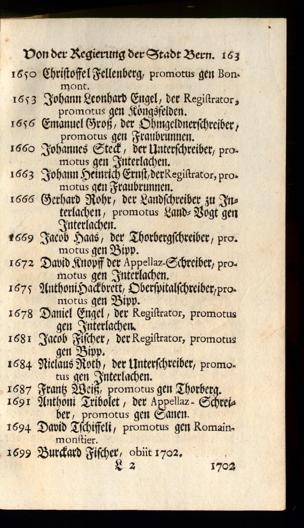 Von der Regierung der Stadt Bern. 163
1650 Christoffel Fellenberg, promotus gen Bon-
mont.
1653 Johann Leonhard Engel, der Registrator,
promotus gen Köngsfelden.
1656 Emanuel Groß, der Ohmgeldnerschreiber,
promotus gen Fraubrunnen.
1660 Johannes Steck, der Unterschreiber, pro-
motus gen Interlachen.
1663 Johann Heinrich Ernst, der Registrator, pro-
motus gen Fraubrunnen.
1666 Gerhard Rohr, der Landschreiber zu In-
terlachen, promotus Land-Vogt gen
Interlachen.
1669 Jacob Haas, der Thorbergschreiber, pro-
motus gen Bipp.
1672 David Knopff der Appellaz-Schreiber, pro-
motus gen Interlachen.
1675 Anthoni Hackbrett, Oberspitalschreiber, pro-
motus gen Bipp.
1678 Daniel Engel, der Registrator, promotus
gen Interlachen.
1681 Jacob Fischer, der Registrator, promotus
gen Bipp.
1684 Niclaus Roth, der Unterschreiber, promo-
tus gen Interlachen.
1687 Frantz Weiß, promotus gen Thorberg.
1691 Anthoni Tribolet, der Appellaz- Schrei-
ber, promotus gen Sanen.
1694 David Tschiffeli, promotus gen Romain-
monstier.
1699 Burckard Fischer, obiit 1702.
L 2 1702